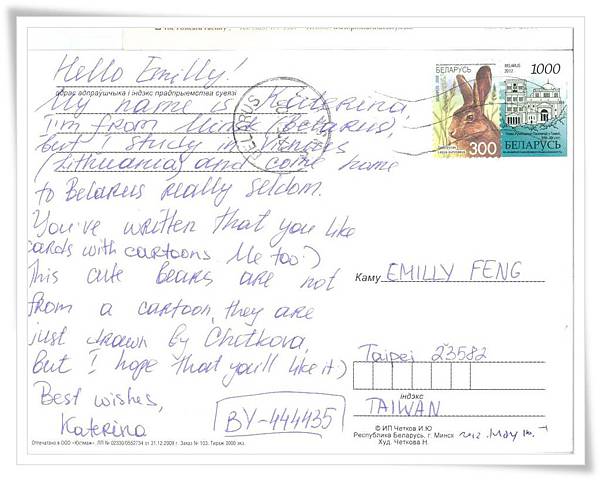 Hello Emilly!
адрас адпраўшчыка і індэкс прадпрыемства сувязі
My name is Katerina,
I'm from Minsk (Belarus),
but I study in Vilnius
(Lithuania) and come home
to Belarus really seldom.
You've written that you like
cards with cartoons. Me too :)
This cute bears are not
from a cartoon, they are
just drawn by Chetkova,
but I hope that you'll like it )
Best wishes,
Katerina
BY-444435
БЕЛАРУСЬ
300
BELARUS
2012
1000
БЕЛАРУСЬ
BELARUS
Каму EMILLY FENG
Taipei 23582
індэкс
TAIWAN
© ИП Четков И.Ю
Республика Беларусь, г. Минск
Худ. Четкова Н.
2012. May
Отпечатано в ООО «Юстмаж». ЛП № 02330/0552734 от 31.12.2009 г. Заказ № 103. Тираж 3000 экз.